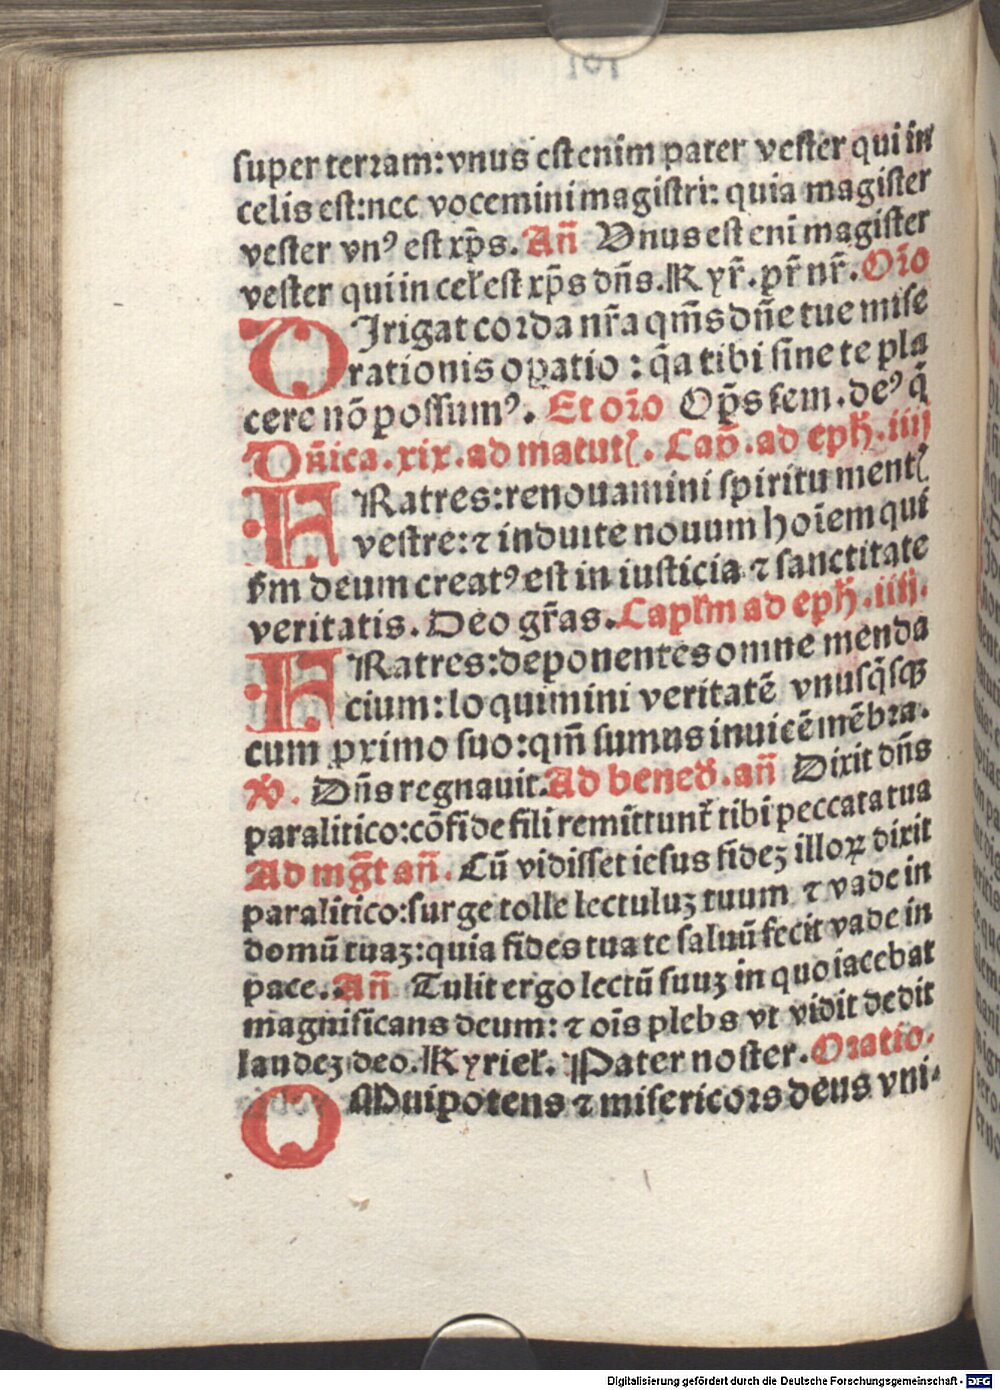 super terram: vnus est enim pater vester qui in
celis est: nec vocemini magistri: quia magister
vester vnꝰ est xp̄s. An̄ Vnus est eni magister
vester qui in cel̄ est xp̄s dn̄s. Kyr̄. pr̄ nr̄. Or̄o
DIrigat corda nr̄a qm̄s dn̄e tue mise
rationis oꝑatio: q̄a tibi sine te pla
cere nō possumꝰ. Et or̄o Op̄s sem. deꝰ q̄
Dn̄ica. xix. ad matut̄. Cap̄. ad eph̄. iiij
FRatres: renouamini spiritu ment̄
vestre: ⁊ induite nouum hoīem qui
sm̄ deum creatꝰ est in iusticia ⁊ sanctitate
veritatis. Deo gr̄as. Capl̄m ad eph̄. iiij.
FRatres: deponentes omne menda
cium: loquimini veritatē vnusq̄sqꝫ
cum ꝓximo suo: qm̄ sumus inuicē mēbra.
℣. Dn̄s regnauit. Ad bened̄. an̄ Dixit dn̄s
paralitico: cōfide fili remittunt̄ tibi peccata tua
Ad mḡt an̄. Cū vidisset iesus fideꝫ illoꝝ dixit
paralitico: surge tolle lectuluꝫ tuum ⁊ vade in
domū tuaꝫ: quia fides tua te saluū fecit vade in
pace. An̄ Tulit ergo lectū suuꝫ in quo iacebat
magnificans deum: ⁊ oīs plebs vt vidit dedit
laudeꝫ deo. Kyriel̄. Pater noster. Oratio.
OMnipotens ⁊ misericors deus vni-
Digitalisierung gefördert durch die Deutsche Forschungsgemeinschaft - DFG